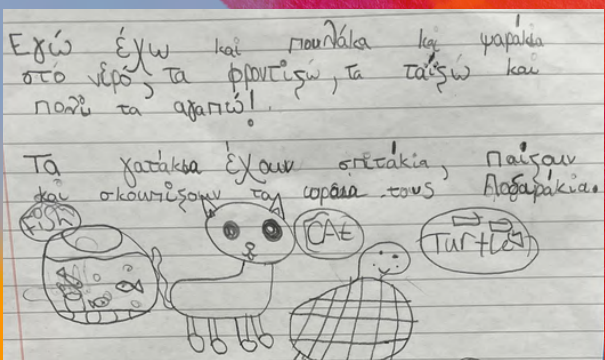 Εγώ έχω και πουλάκα και ψαράκια
στό νέρό, τα φροντίζω, τα ταΐζω και
πολύ τα αγαπώ!
Τα γατάκια έχουν σπιτάκια, παίζουν
και σκουπίζουν τα ωραία τους ποδαράκια.
Fish
CAt
Turtle